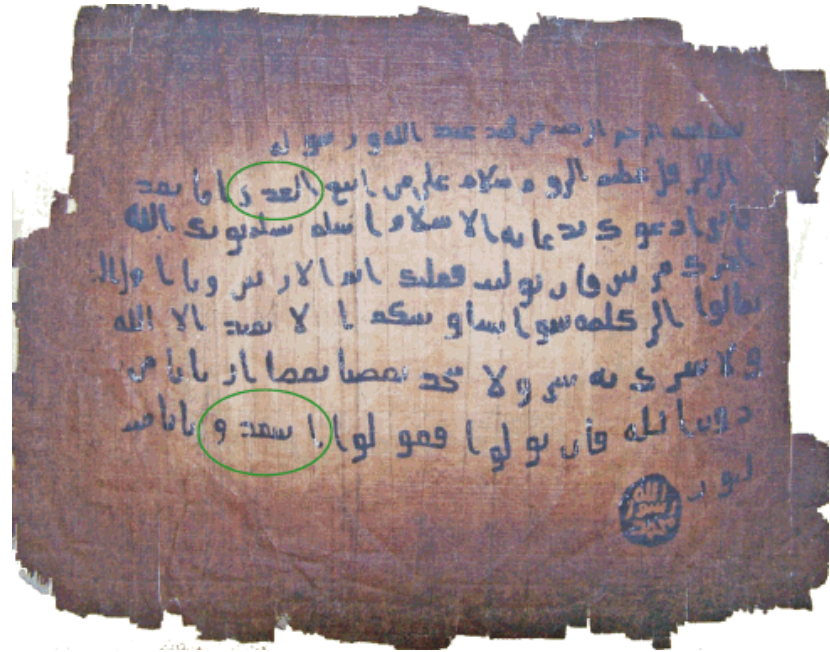 بسم الله الرحمن الرحيم من محمد عبد الله و رسوله
الى هرقل عظيم الروم سلام على من اتبع الهدى اما بعد
فانى ادعوك بدعاية الاسلام اسلم تسلم يوتك الله
اجرك مرتين فان توليت فعليك اثم الاريسين ويا اهل
تعالوا الى كلمة سوا بيننا وبينكم ا لا نعبد الا الله
ولا نشرك به شيا ولا يتخذ بعضنا بعضا اربابا من
دون الله فان تولوا فقولوا اشهدوا بانا مس
لمون
الله
رسول
محمد